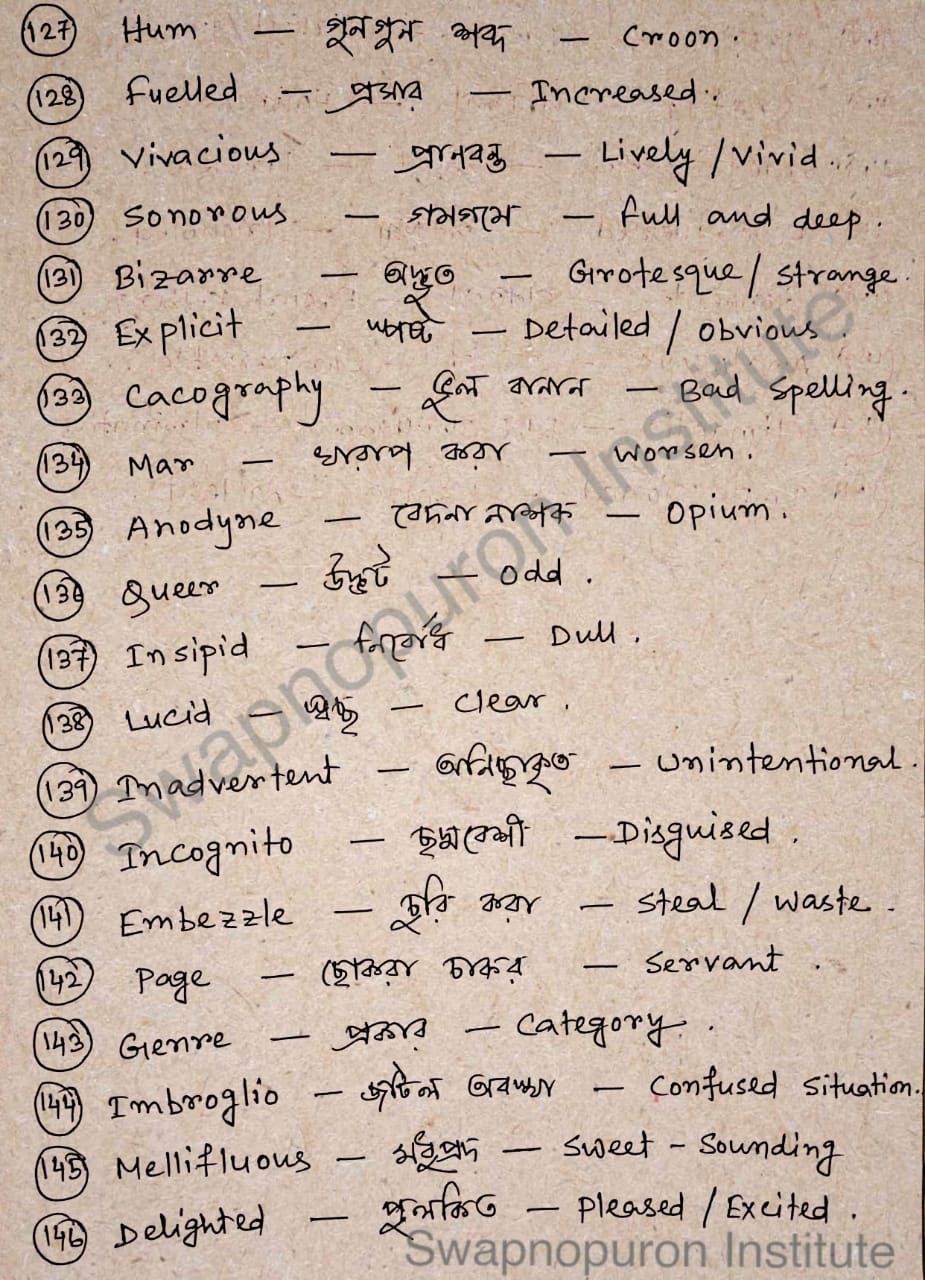 127 Hum — গুনগুন শব্দ — Croon.
128 Fuelled — প্রসার — Increased.
129 Vivacious — প্রানবন্ত — Lively / Vivid.
130 Sonorous — গমগমে — Full and deep.
131 Bizarre — অদ্ভুত — Grotesque / Strange.
132 Explicit — স্পষ্ট — Detailed / Obvious.
133 Cacography — ভুল বানান — Bad Spelling.
134 Mar — খারাপ করা — Worsen.
135 Anodyne — বেদনা নাশক — Opium.
136 Queer — উদ্ভট — Odd.
137 Insipid — নির্বোধ — Dull.
138 Lucid — স্বচ্ছ — Clear.
139 Inadvertent — অনিচ্ছাকৃত — Unintentional.
140 Incognito — ছদ্মবেশী — Disguised.
141 Embezzle — চুরি করা — Steal / Waste.
142 Page — ছোকরা চাকর — Servant.
143 Genre — প্রকার — Category.
144 Imbroglio — জটিল অবস্থা — Confused Situation.
145 Mellifluous — মধুপ্রদ — Sweet - Sounding
146 Delighted — পুলকিত — Pleased / Excited.
Swapnopuron Institute
Swapnopuron Institute